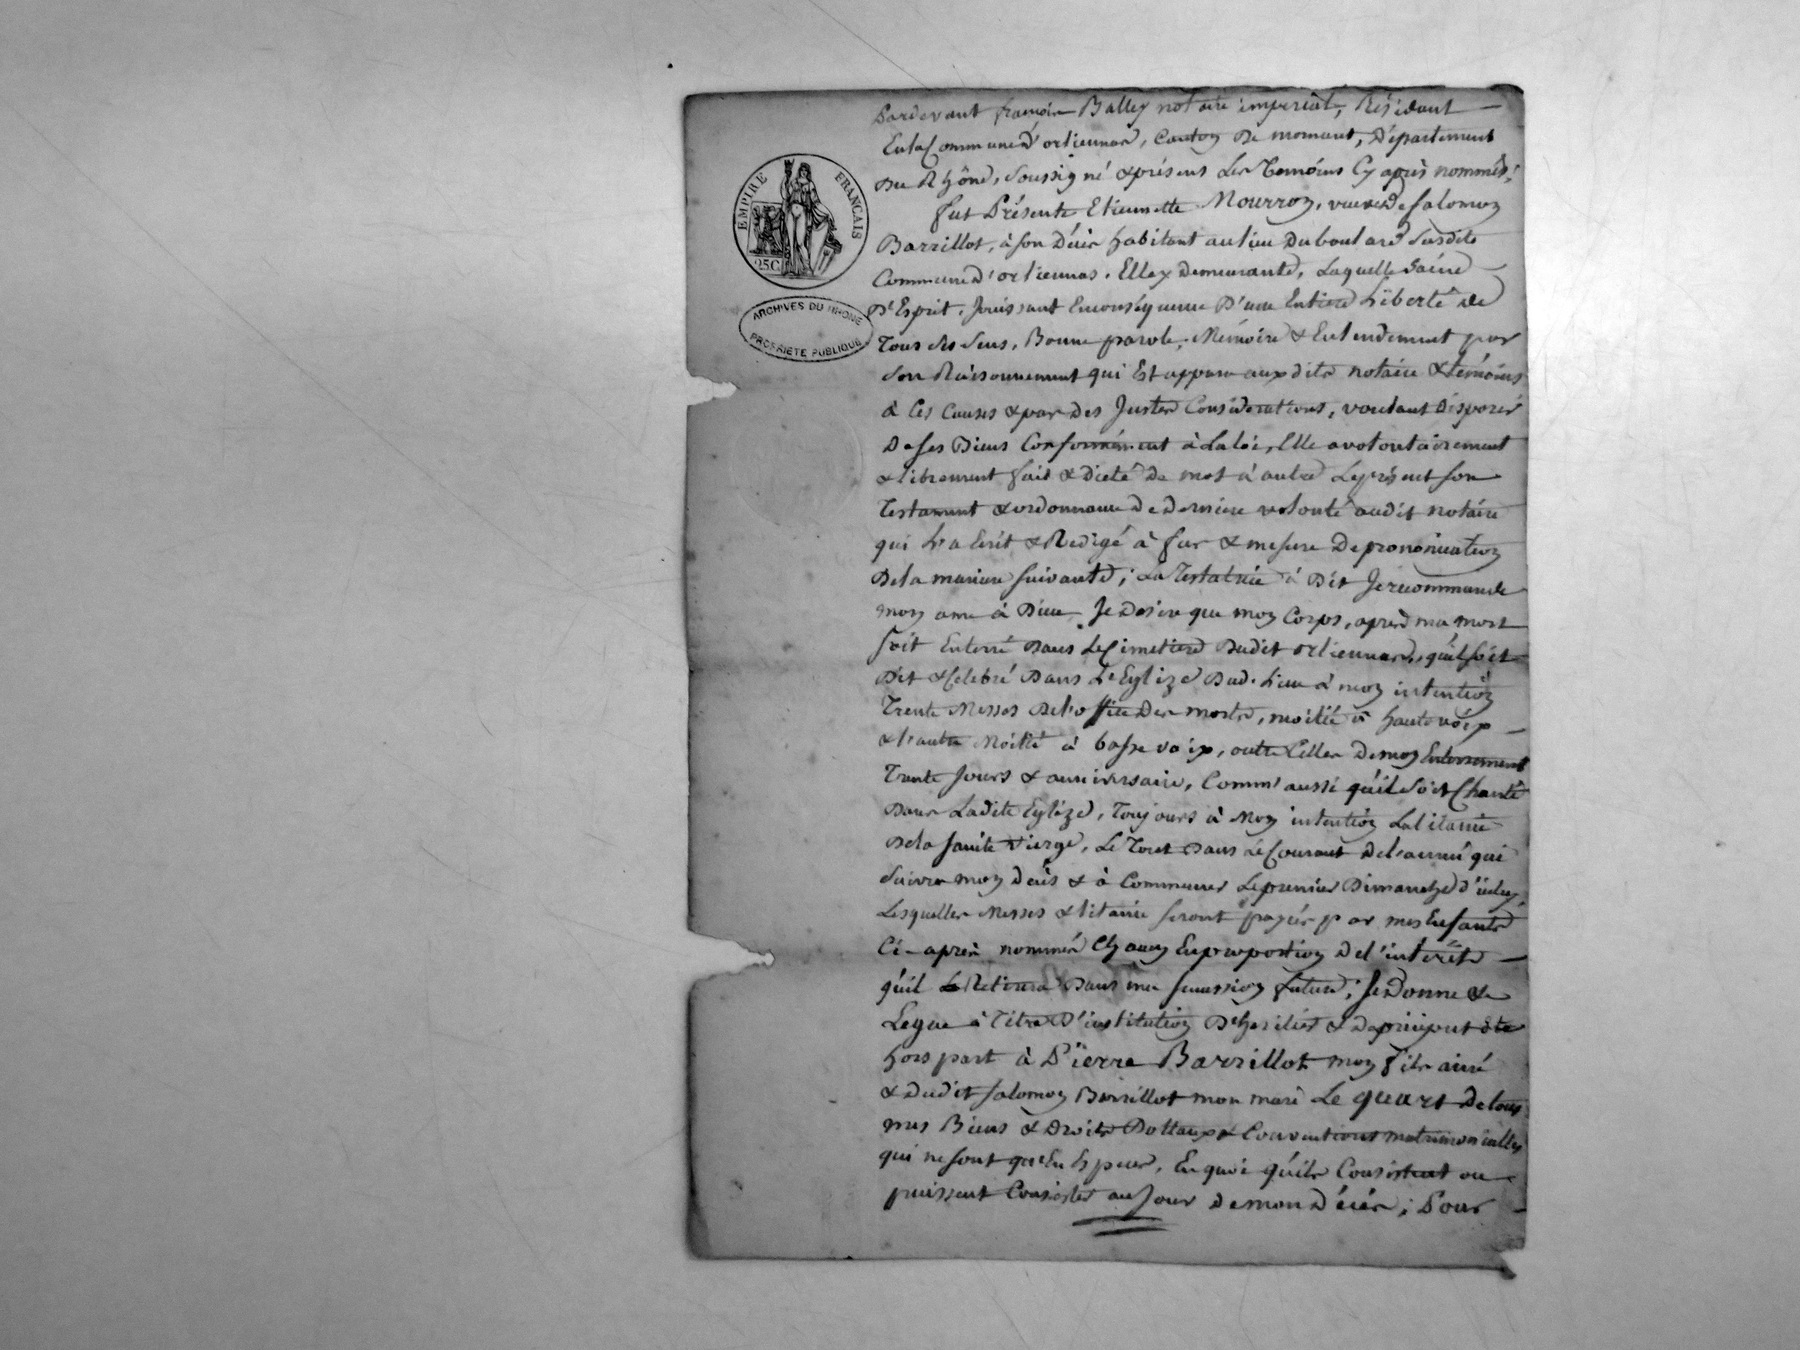 Pardevant françois Balley notaire imperial, Résidant
En la Commune d'orliennas, Canton De mornant, Département
Du Rhône, soussigné & présens Les Temoins Cy après nommés;
fut Présente Etiennette Mourron, veuve De Salomon
Barrillot, à son Décès habitant au lieu Duboulard Susdite
Commune d'orliennas. Elle y Demeurante, Laquelle Saine
D'Esprit, Jouissant En conséquence D'une Entiere Liberté de
Tous ses sens, Bonne parole, Mémoire & Entendement par
Son Raisonnement qui Est apparu auxdits notaire & témoins
à Ces Causes & par des Justes Considerations, voulant disposer
De ses Biens Conformément à La loi, Elle a volontairement
& librement fait & dicté De mot à autre Le présent son
Testament & ordonnance De Derniere volonté audit notaire
qui L'a Ecrit & Redigé à fur & mesure De prononciation
De la maniere suivante; La Testatrice à Dit Je recommande
mon ame à Dieu Je Desire que mon Corps, après ma mort
soit Enterré Dans Le Cimetiere Dudit orliennas, qu'il soit
Dit & Celebré Dans L'Eglize Dud. Lieu à mon intention
Trente Messes De l'office Des morts, moitié à haute voix
& l'autre Moitié à basse voix, outre Celles De mon Enterrement
Trente Jours & anniversaire, Comm' aussi qu'il Soit Chanté
Dans Ladite Eglize, Toujours à Mon intention La litanie
De la Sainte Vierge, Le Tout Dans Le Courant De l'année qui
Suivra mon Decès & à Commencer Le premier Dimanche d'icelui,
Lesquelles Messes & litanie seront payés par mes Enfants
Ci-après nommés Chacun En proportion De l'intérêts
qu'il Retirera Dans ma succession future; Je Donne &
Legue à Titre D'institution D'heritier & De préciput &
hors part à Pierre Barrillot mon fils ainé
& Dudit Salomon Barrillot mon mari Le quart De tous
mes Biens & Droits Dottaux & Conventions matrimonialles
qui ne sont qu'En Espece, En quoi qu'ils Consistent ou
puissent Consister au Jour De mon Décès; Pour
EMPIRE FRANÇAIS
25C
ARCHIVES DU RHONE
PROPRIETE PUBLIQUE